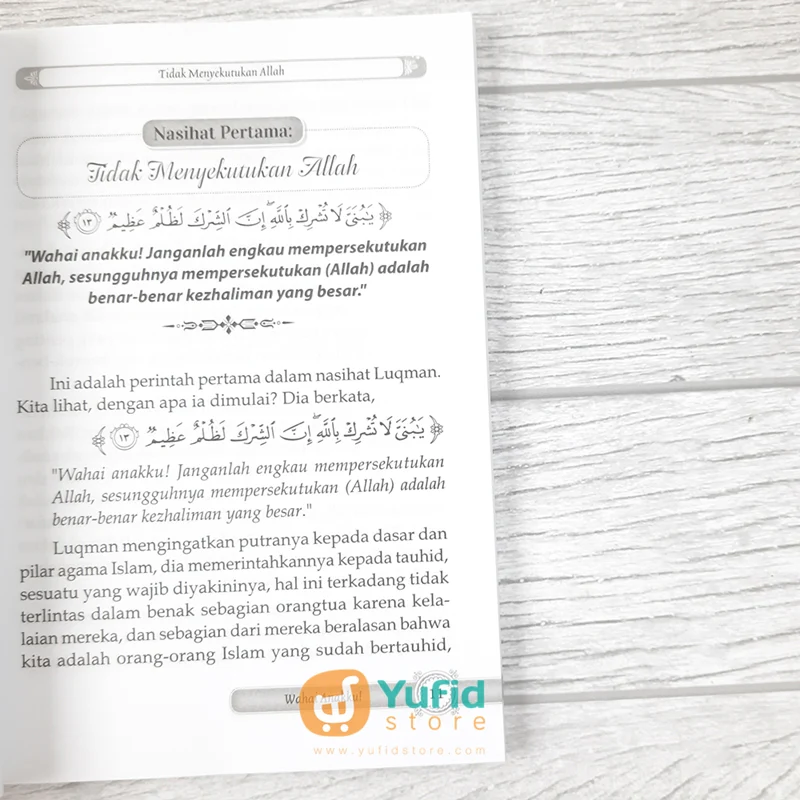 Tidak Menyekutukan Allah
Nasihat Pertama:
Tidak Menyekutukan Allah
﴿ يَٰبُنَيَّ لَا تُشْرِكْ بِٱللَّهِۖ إِنَّ ٱلشِّرْكَ لَظُلْمٌ عَظِيمٌ ١٣ ﴾
"Wahai anakku! Janganlah engkau mempersekutukan
Allah, sesungguhnya mempersekutukan (Allah) adalah
benar-benar kezhaliman yang besar."
Ini adalah perintah pertama dalam nasihat Luqman.
Kita lihat, dengan apa ia dimulai? Dia berkata,
﴿ يَٰبُنَيَّ لَا تُشْرِكْ بِٱللَّهِۖ إِنَّ ٱلشِّرْكَ لَظُلْمٌ عَظِيمٌ ١٣ ﴾
"Wahai anakku! Janganlah engkau mempersekutukan
Allah, sesungguhnya mempersekutukan (Allah) adalah
benar-benar kezhaliman yang besar."
Luqman mengingatkan putranya kepada dasar dan
pilar agama Islam, dia memerintahkannya kepada tauhid,
sesuatu yang wajib diyakininya, hal ini terkadang tidak
terlintas dalam benak sebagian orangtua karena kela-
laian mereka, dan sebagian dari mereka beralasan bahwa
kita adalah orang-orang Islam yang sudah bertauhid,
Wahai Anakku!
11
Yufid
store
www.yufidstore.com